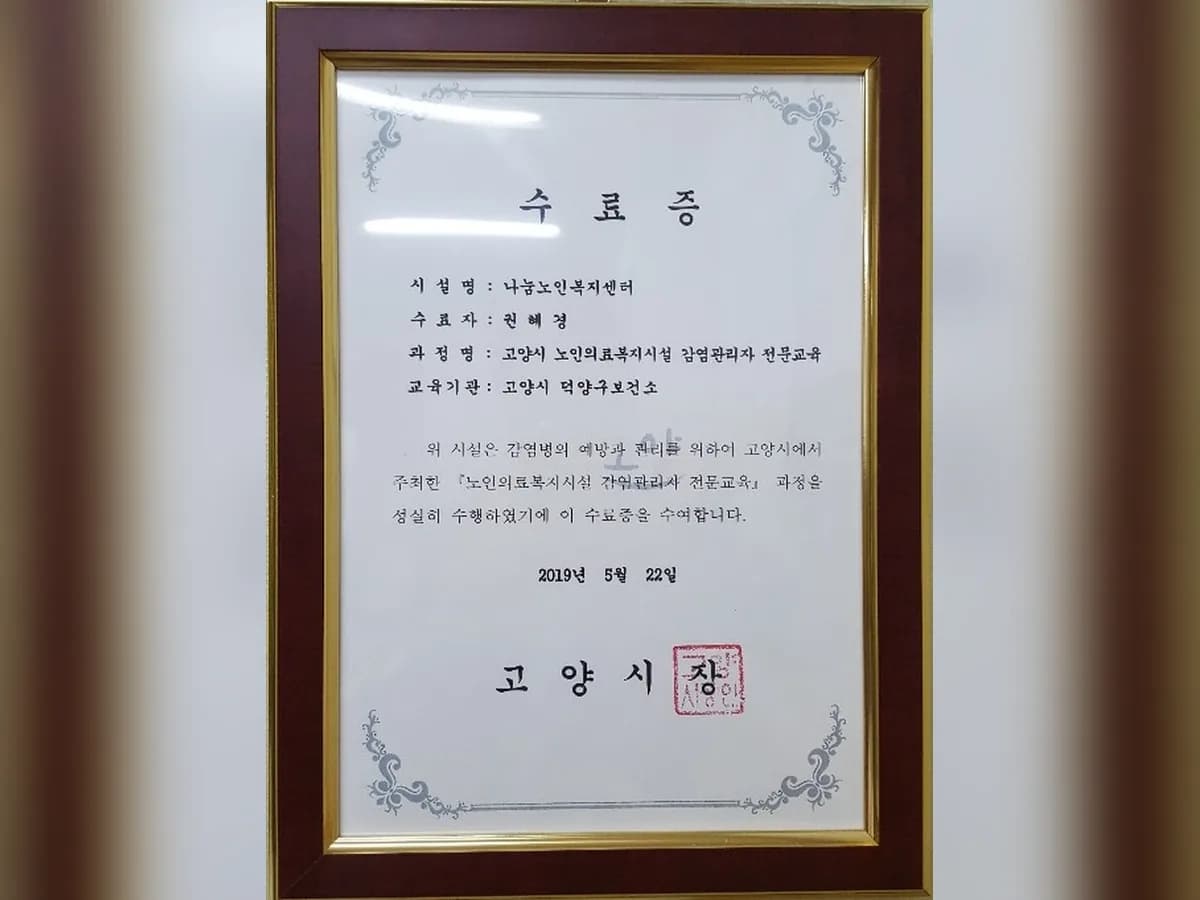 수 료 증
시 설 명 : 나눔노인복지센터
수 료 자 : 권 혜 경
과 정 명 : 고양시 노인의료복지시설 감염관리자 전문교육
교육기관 : 고양시 덕양구보건소
위 시설은 감염병의 예방과 관리를 위하여 고양시에서
주최한 『노인의료복지시설 감염관리사 전문교육』 과정을
성실히 수행하였기에 이 수료증을 수여합니다.
2019년 5월 22일
고 양 시 장
고양
시장인